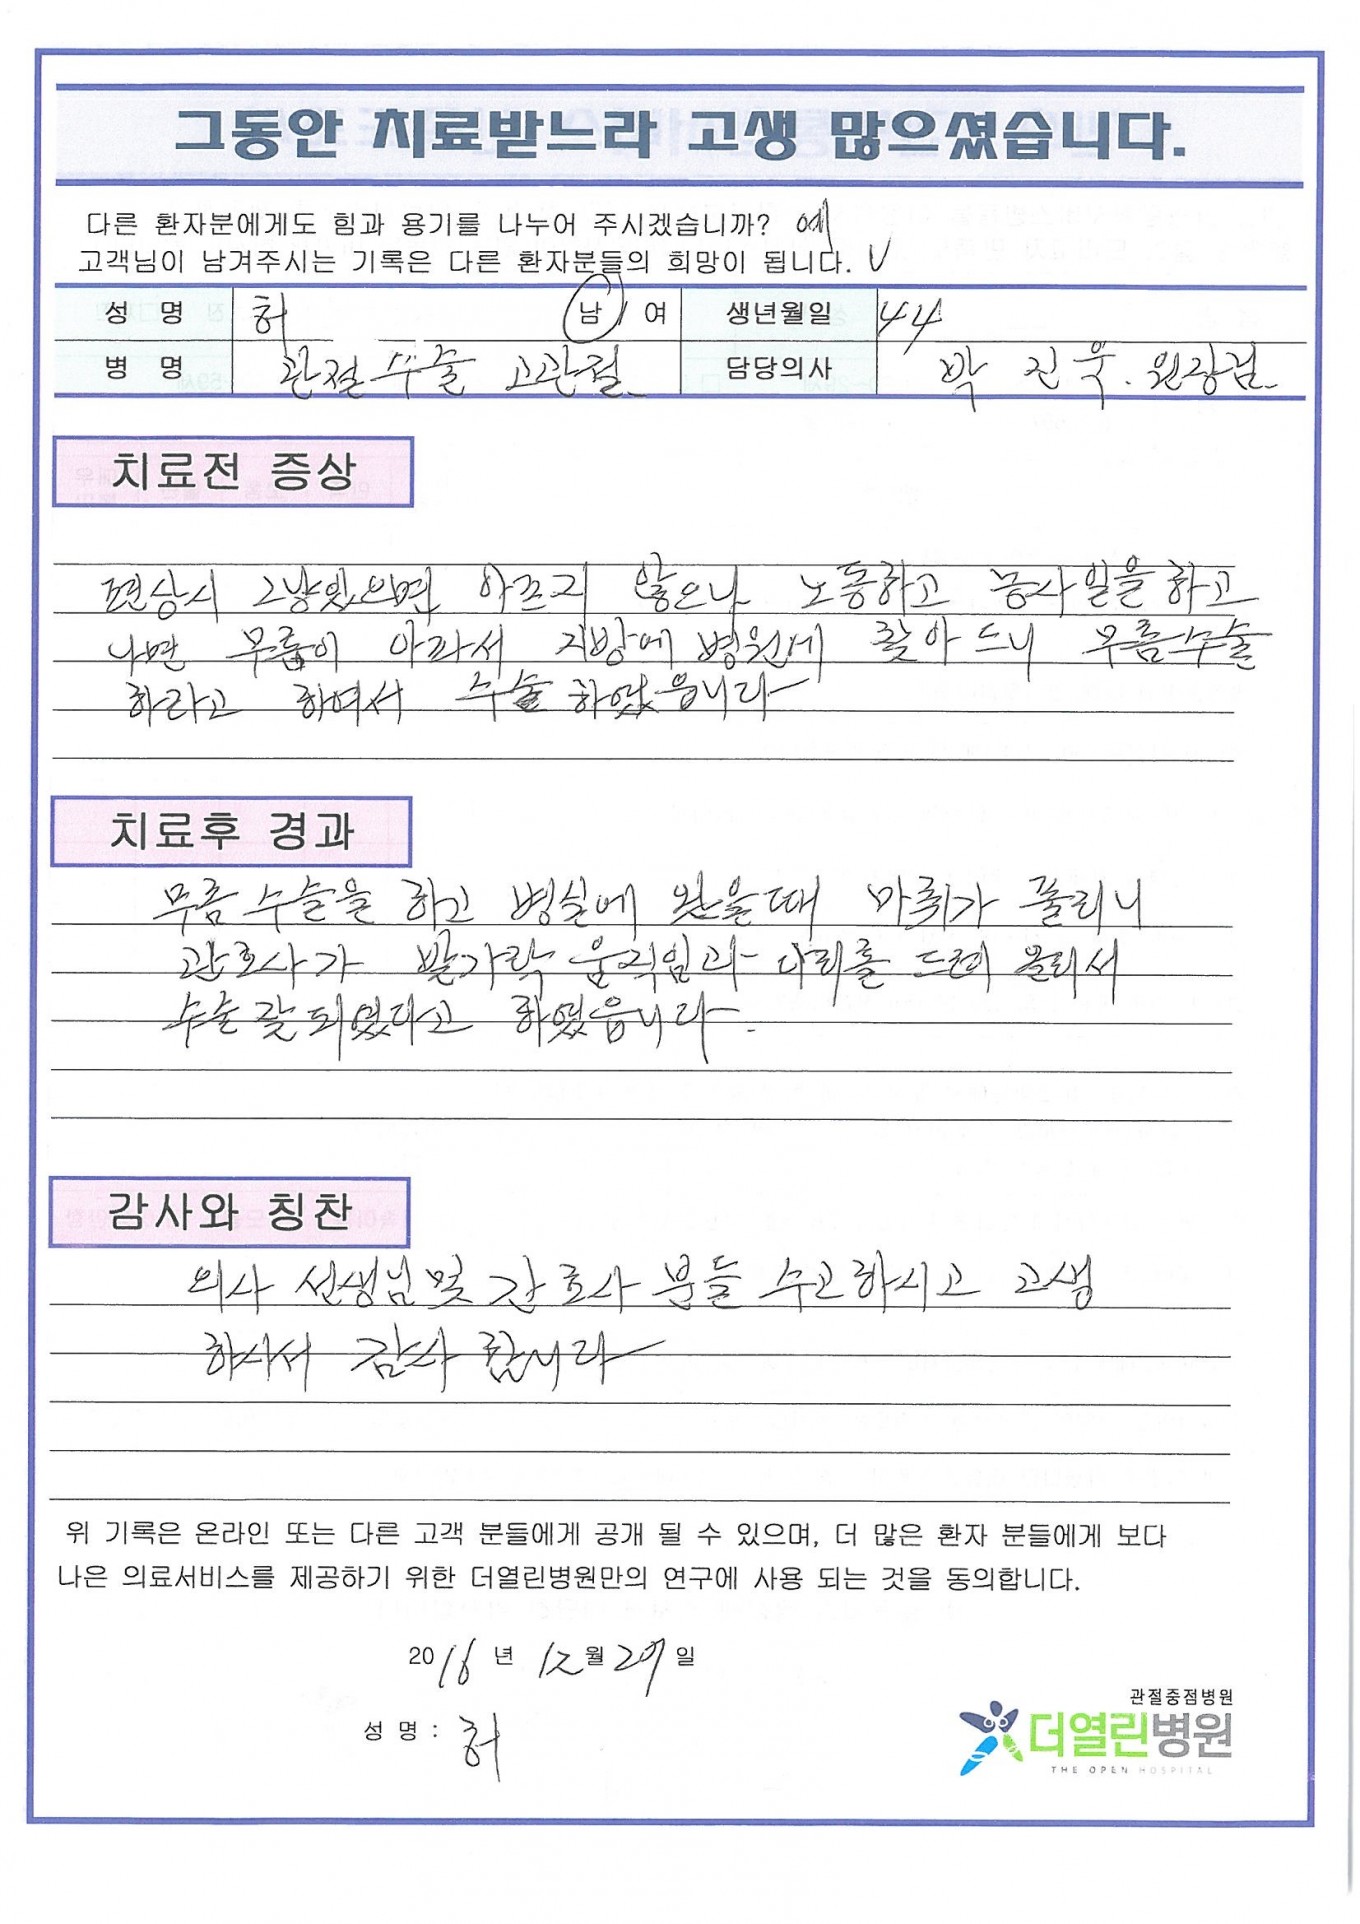 그동안 치료받느라 고생 많으셨습니다.
다른 환자분에게도 힘과 용기를 나누어 주시겠습니까? 예
고객님이 남겨주시는 기록은 다른 환자분들의 희망이 됩니다. V
성 명 허 남 / 여 생년월일 44
병 명 관절수술 고관절 담당의사 박진욱. 원장님
치료전 증상
평상시 그냥있으면 아프지 않으나 노동하고 농사일을 하고
나면 무릎이 아파서 지방에 병원에 찾아 드니 무릎수술
하라고 하여서 수술 하였읍니다
치료후 경과
무릎 수술을 하고 병실에 왔을때 마취가 풀리니
간호사가 발가락 움직임과 다리를 드러 올려서
수술 잘 되였다고 하였읍니다.
감사와 칭찬
의사 선생님 및 간호사 분들 수고하시고 고생
하사서 감사 합니다
위 기록은 온라인 또는 다른 고객 분들에게 공개 될 수 있으며, 더 많은 환자 분들에게 보다
나은 의료서비스를 제공하기 위한 더열린병원만의 연구에 사용 되는 것을 동의합니다.
2016 년 12월 29일
성 명 : 허
관절중점병원
더열린병원
THE OPEN HOSPITAL